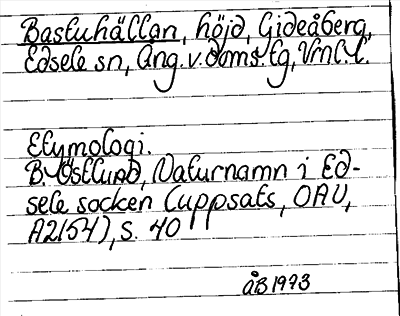 Bastuhällan, höjd, Gideåberg,
Edsele sn, Ång. v. doms. tg, Vrnl. l.
Etymologi.
B. Östlund, Naturnamn i Ed-
sele socken (uppsats, OAU,
A2154), s. 40
ÅB 1973